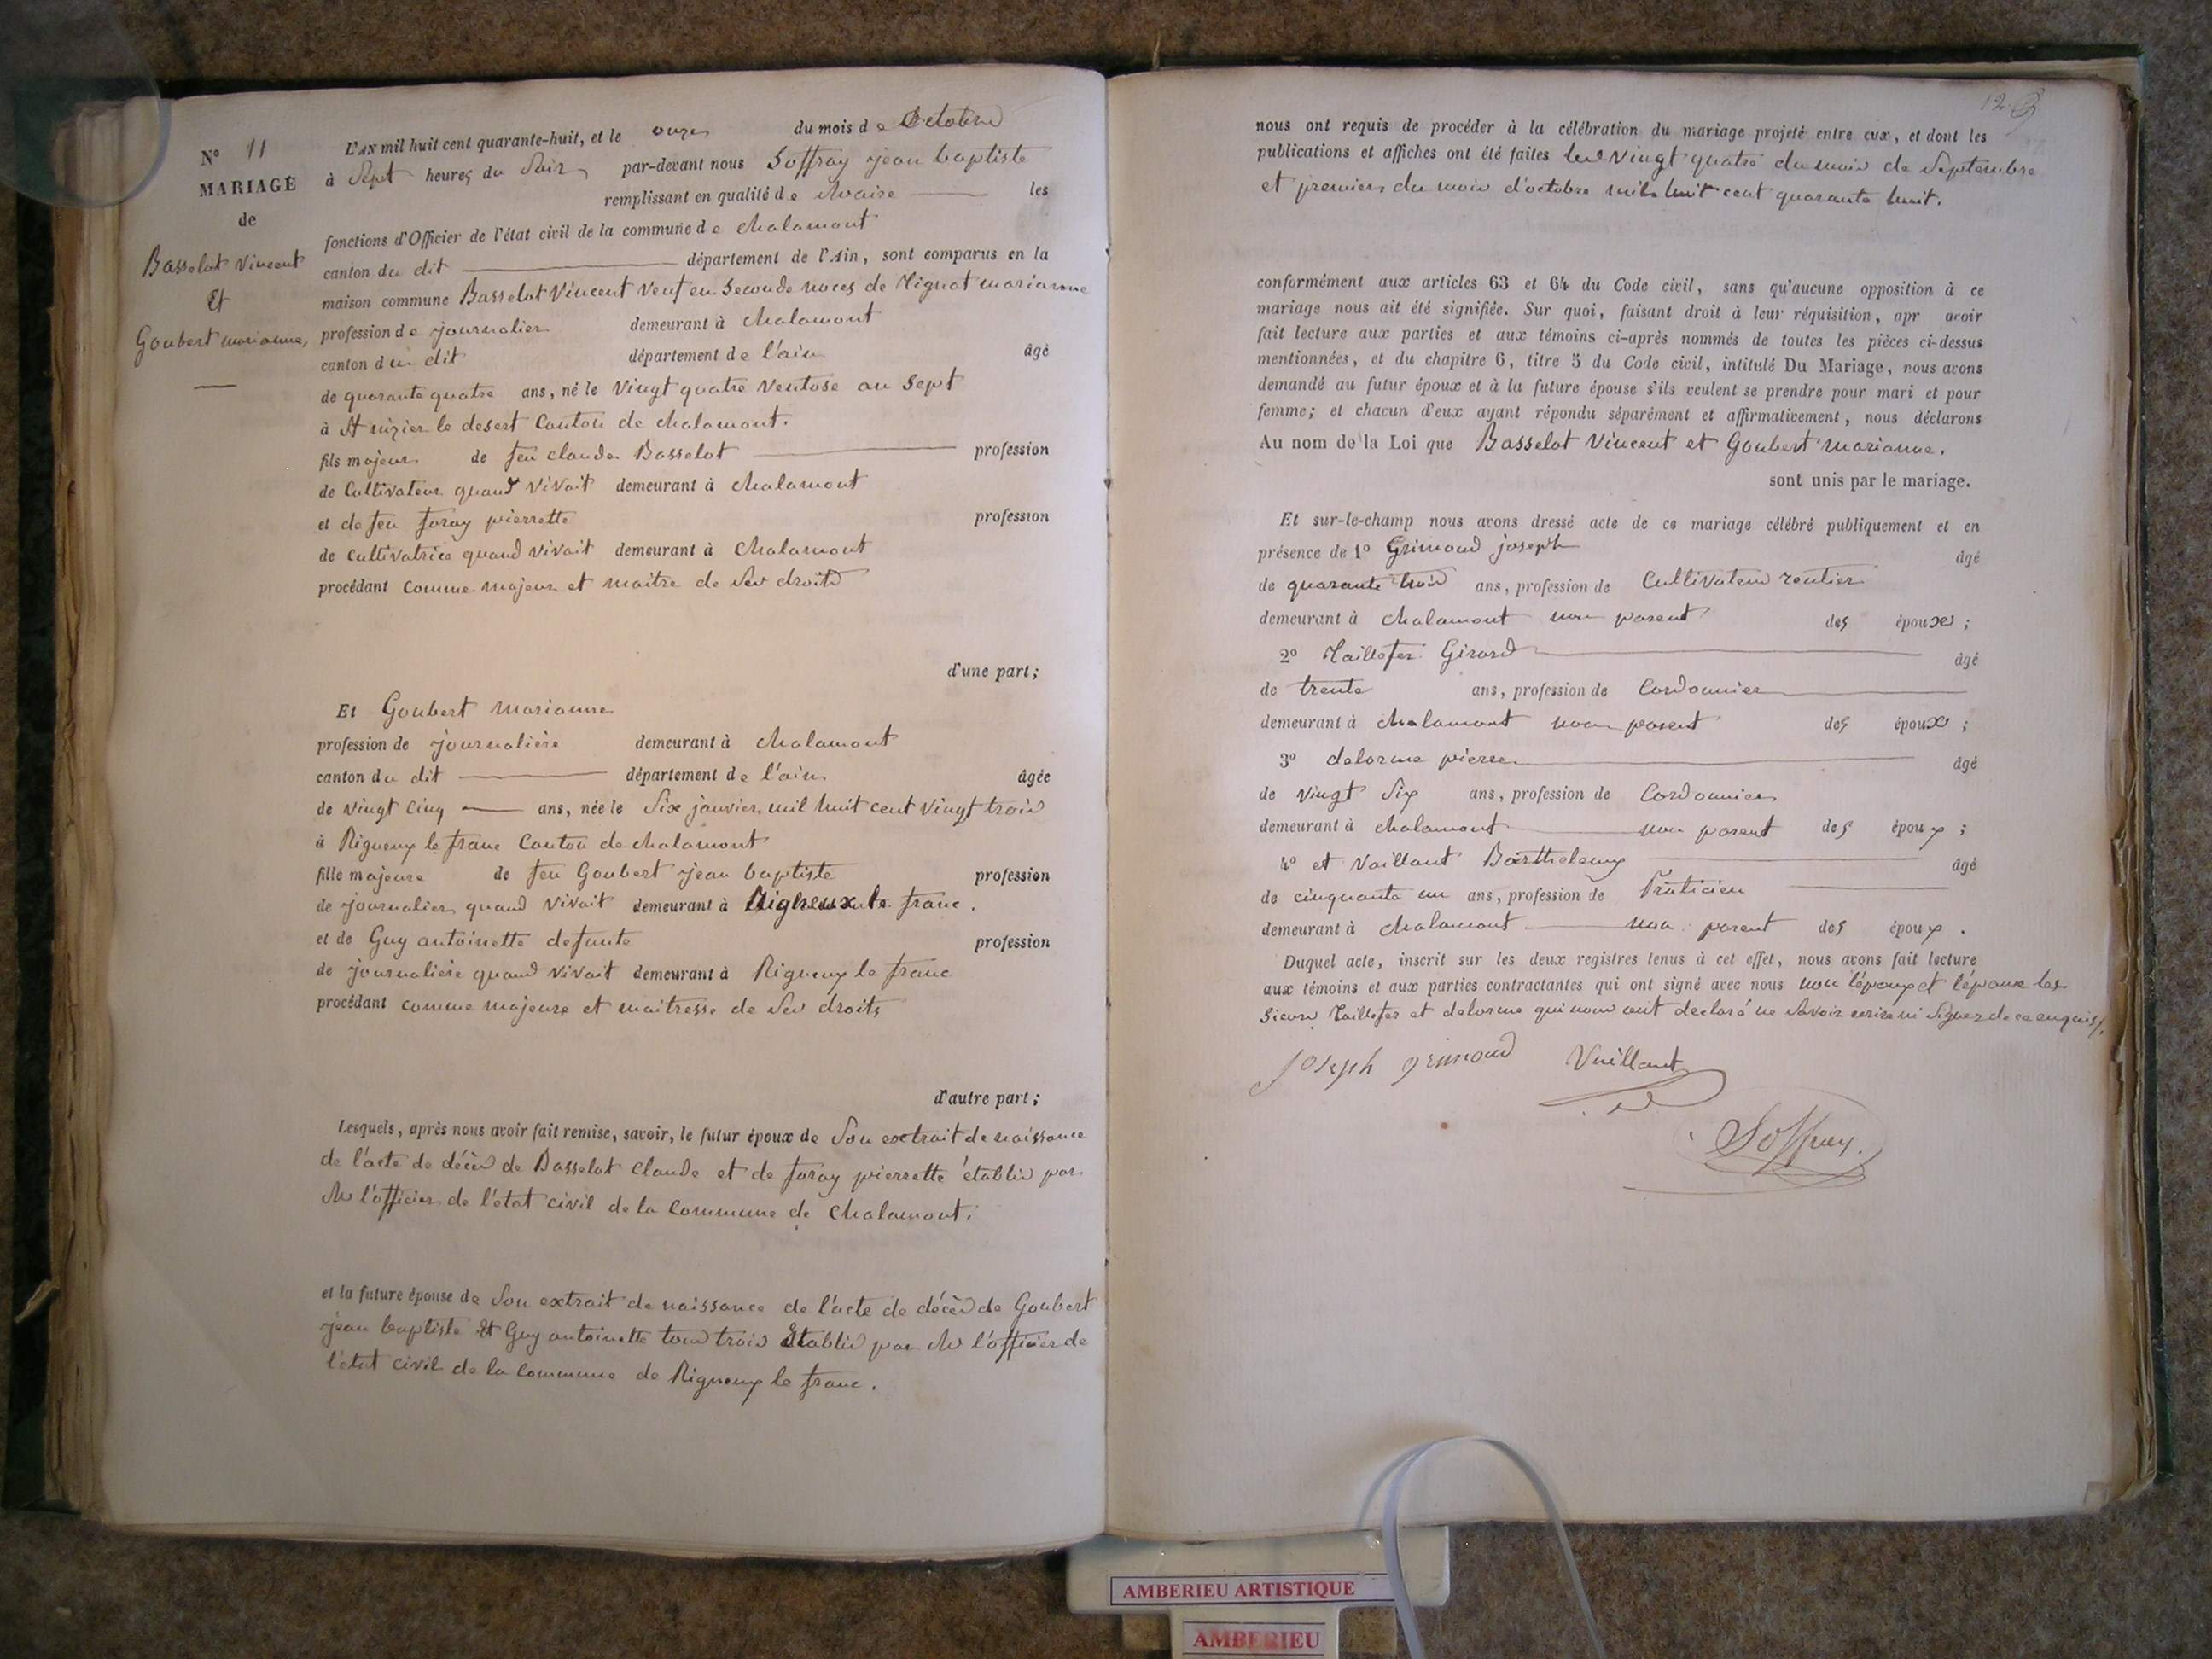 N° 11
MARIAGE
de
Basselot Vincent
Et
Goubert marianne,
L'AN mil huit cent quarante-huit, et le onze du mois de Octobre
à Sept heures du Soir par-devant nous Soffray jean baptiste
remplissant en qualité de Maire les
fonctions d'Officier de l'état civil de la commune de chalamont
canton du dit département de l'Ain, sont comparus en la
maison commune Basselot Vincent Veuf en Seconde noces de Mignot marianne
profession de journalier demeurant à chalamont
canton du dit département de l'ain âgé
de quarante quatre ans, né le Vingt quatre Ventose an Sept
à St nizier le desert Canton de chalamont.
fils majeur de feu claude Basselot profession
de Cultivateur quand Vivait demeurant à chalamont
et de feu foray pierrette profession
de Cultivatrice quand Vivait demeurant à Chalamont
procédant Comme majeur et maitre de Ses droits
d'une part;
Et Goubert marianne
profession de journalière demeurant à chalamont
canton du dit département de l'ain âgée
de Vingt Cinq ans, née le Six janvier mil huit cent Vingt trois
à Rigneux le franc Canton de chalamont
fille majeure de feu Goubert jean baptiste profession
de journalier quand Vivait demeurant à Rigneux le franc.
et de Guy antoinette defunte profession
de journalière quand Vivait demeurant à Rigneux le franc
procédant comme majeure et maitresse de Ses droits
d'autre part;
Lesquels, après nous avoir fait remise, savoir, le futur époux de Son extrait de naissance
de l'acte de décès de Basselot Claude et de foray pierrette établis par
Mr l'officier de l'état civil de la Commune de Chalamont.
et la future épouse de Son extrait de naissance de l'acte de décès de Goubert
jean baptiste Et Guy antoinette tous trois Etablis par Mr l'officier de
l'état civil de la Commune de Rigneux le franc.
12
nous ont requis de procéder à la célébration du mariage projeté entre eux, et dont les
publications et affiches ont été faites les Vingt quatre du mois de Septembre
et premier du mois d'octobre mil huit cent quarante huit.
conformément aux articles 63 et 64 du Code civil, sans qu'aucune opposition à ce
mariage nous ait été signifiée. Sur quoi, faisant droit à leur réquisition, apr avoir
fait lecture aux parties et aux témoins ci-après nommés de toutes les pièces ci-dessus
mentionnées, et du chapitre 6, titre 5 du Code civil, intitulé Du Mariage, nous avons
demandé au futur époux et à la future épouse s'ils veulent se prendre pour mari et pour
femme; et chacun d'eux ayant répondu séparément et affirmativement, nous déclarons
Au nom de la Loi que Basselot Vincent et Goubert marianne.
sont unis par le mariage.
Et sur-le-champ nous avons dressé acte de ce mariage célébré publiquement et en
présence de 1° Grimoud joseph âgé
de quarante trois ans, profession de Cultivateur rentier
demeurant à chalamont non parent des époux;
2° Taillefer Girard âgé
de trente ans, profession de Cordonnier
demeurant à chalamont non parent des époux;
3° delorme pierre âgé
de Vingt Six ans, profession de Cordonnier
demeurant à chalamont non parent des époux;
4° et Vaillant Barthelemy âgé
de cinquante un ans, profession de Praticien
demeurant à chalamont non parent des époux.
Duquel acte, inscrit sur les deux registres tenus à cet effet, nous avons fait lecture
aux témoins et aux parties contractantes qui ont signé avec nous non l'époux et l'épouse les
Sieurs Taillefer et delorme qui nous ont declaré ne Savoir ecrire ni Signer de ce enquis.
Joseph grimoud Vaillant
Soffray.
AMBERIEU ARTISTIQUE
AMBERIEU